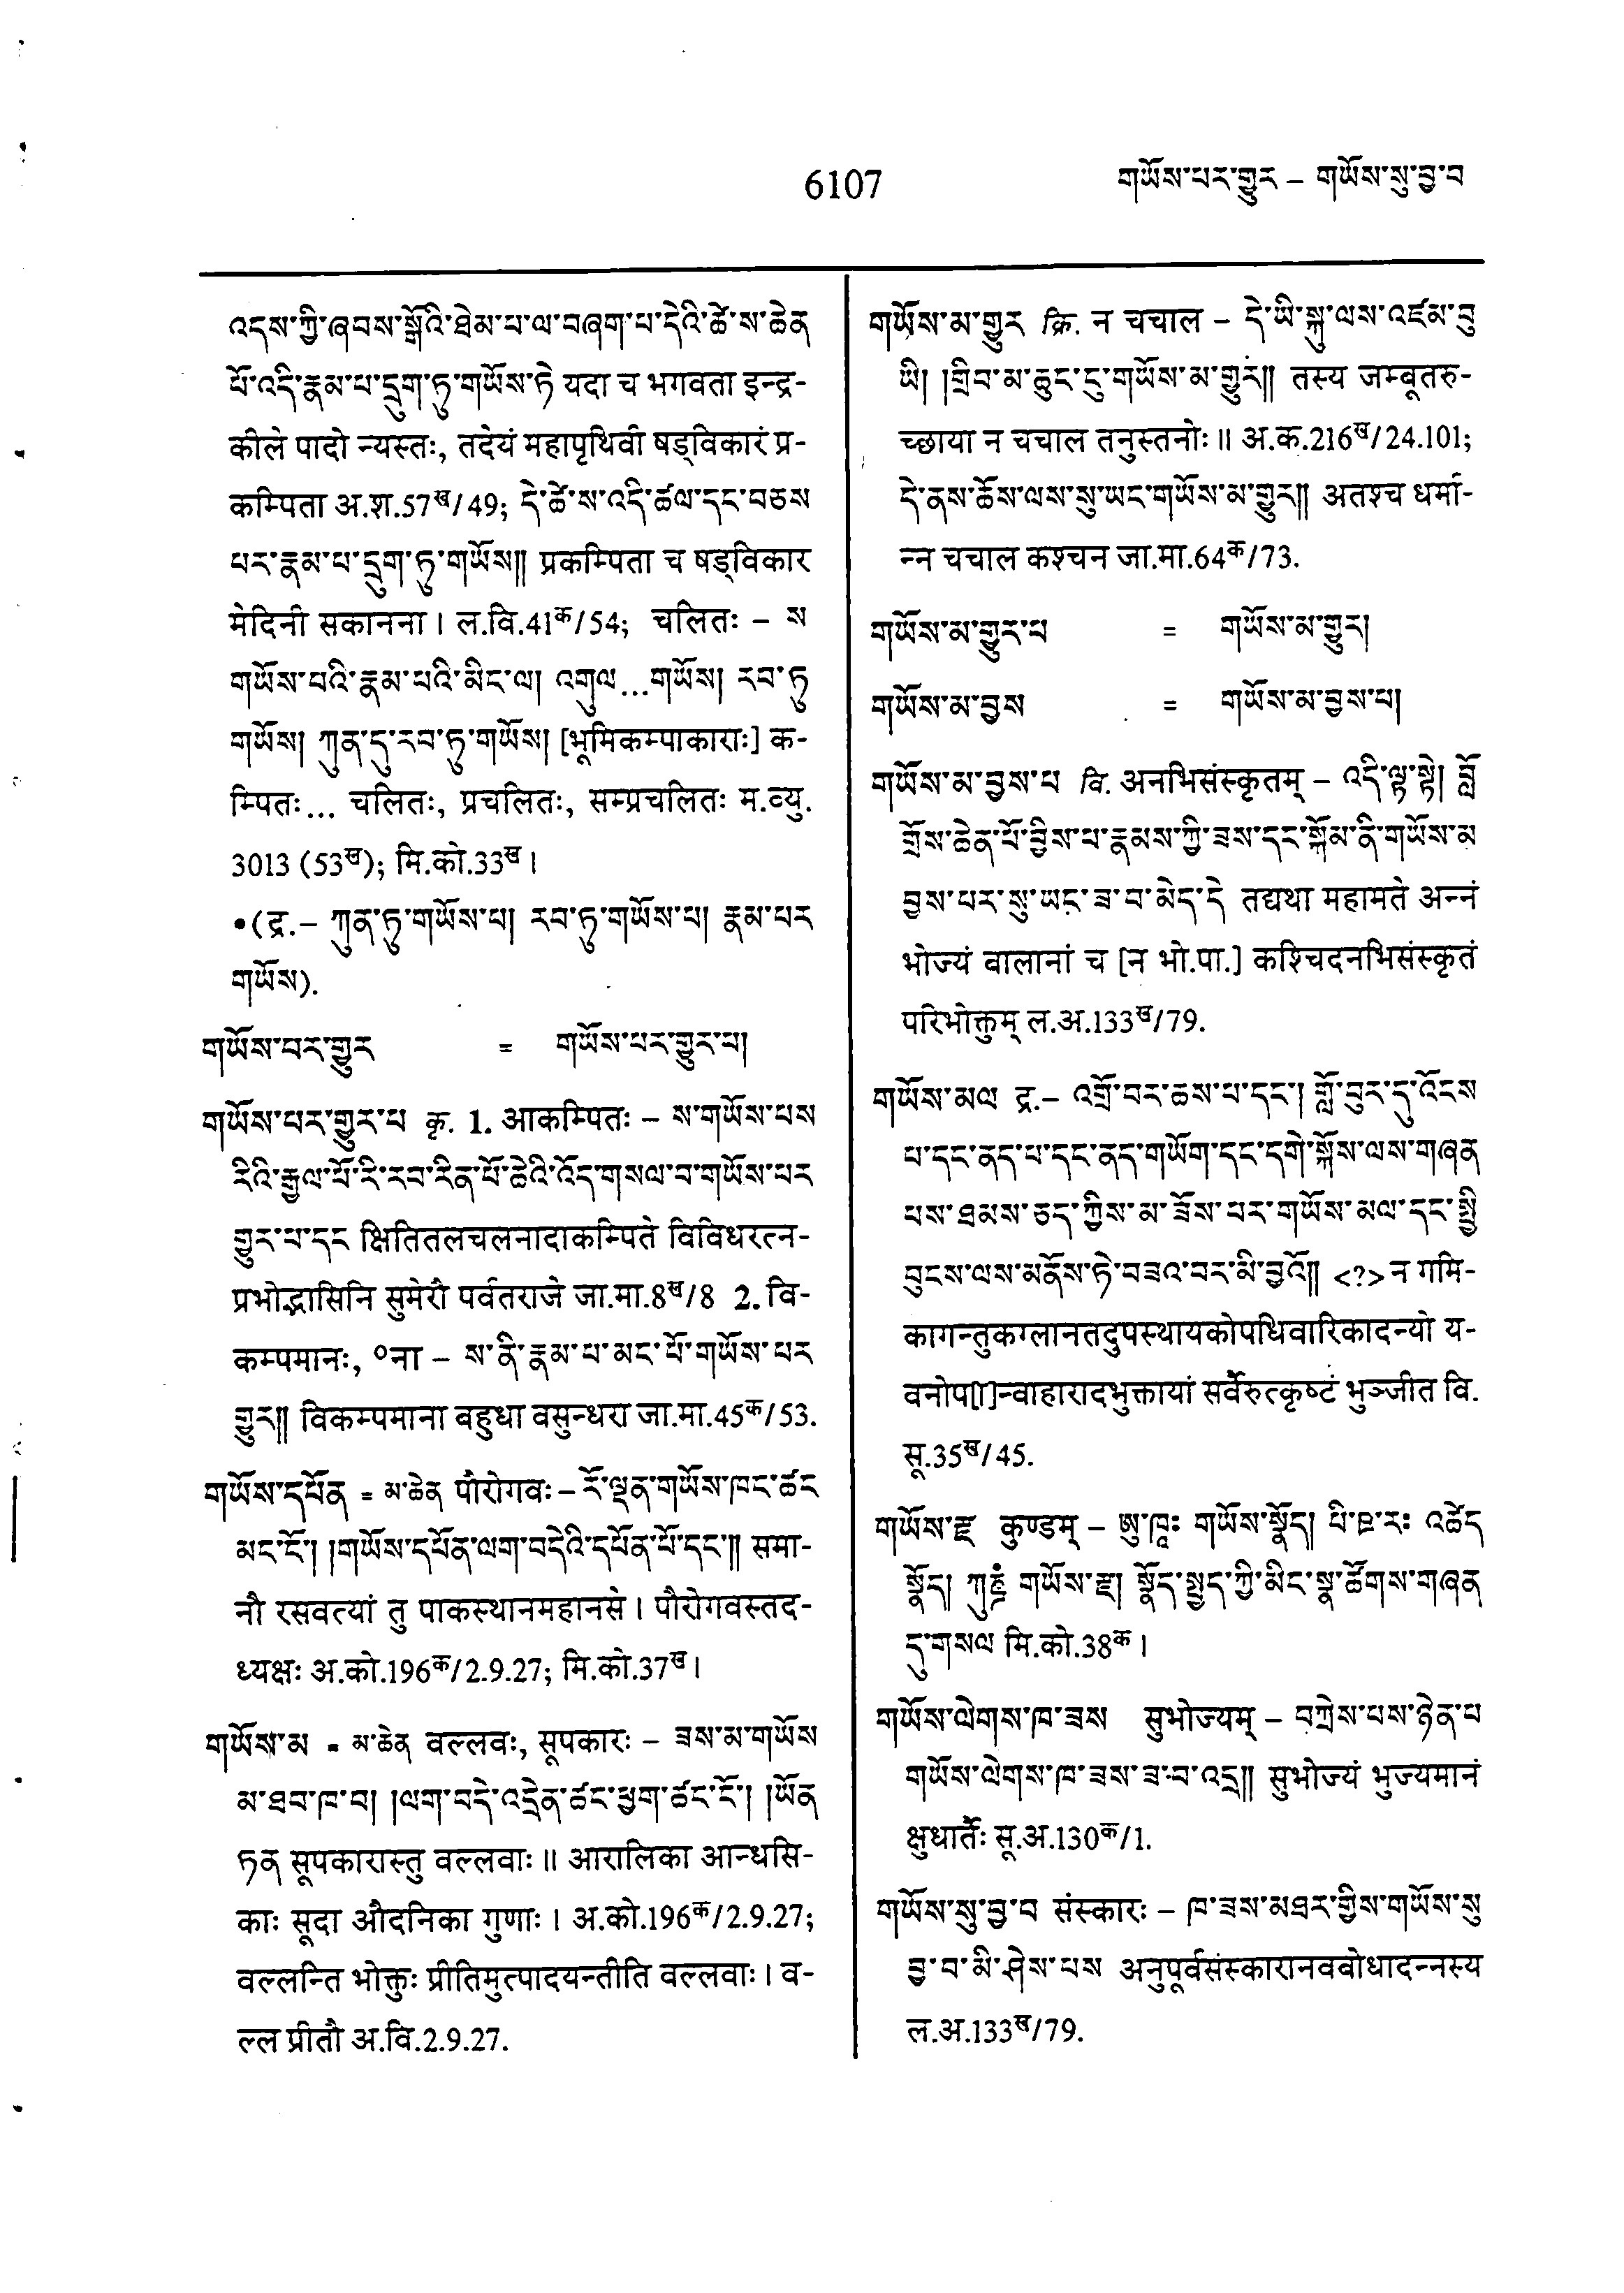 6107
གཡོས་པར་གྱུར – གཡོས་སུ་བྱ་བ
འདས་ཀྱི་ཞབས་སྒོའི་ཐེམ་པ་ལ་བཞག་པ་དེའི་ཚེ་ས་ཆེན
པོ་འདི་རྣམ་པ་དྲུག་ཏུ་གཡོས་ཏེ यदा च भगवता इन्द्र-
कीले पादो न्यस्तः, तदेयं महापृथिवी षड्विकारं प्र-
कम्पिता अ.श.57ख/49; དེ་ཚེ་ས་འདི་ཚལ་དང་བཅས
པར་རྣམ་པ་དྲུག་ཏུ་གཡོས།། प्रकम्पिता च षड्विकार
मेदिनी सकानना । ल.वि.41क/54; चलितः – ས
གཡོས་པའི་རྣམ་པའི་མིང་ལ། འགུལ...གཡོས། རབ་ཏུ
གཡོས། ཀུན་དུ་རབ་ཏུ་གཡོས། [भूमिकम्पाकाराः] क-
म्पितः... चलितः, प्रचलितः, सम्प्रचलितः म.व्यु.
3013 (53ख); मि.को.33ख ।
•(द्र.– ཀུན་ཏུ་གཡོས་པ། རབ་ཏུ་གཡོས་པ། རྣམ་པར
གཡོས).
གཡོས་པར་གྱུར = གཡོས་པར་གྱུར་པ།
གཡོས་པར་གྱུར་པ कृ. 1. आकम्पितः – ས་གཡོས་པས
རིའི་རྒྱལ་པོ་རི་རབ་རིན་པོ་ཆེའི་འོད་གསལ་བ་གཡོས་པར
གྱུར་པ་དང क्षितितलचलनादाकम्पिते विविधरत्न-
प्रभोद्भासिनि सुमेरौ पर्वतराजे जा.मा.8ख/8 2. वि-
कम्पमानः, ॰ना – ས་ནི་རྣམ་པ་མང་པོ་གཡོས་པར
གྱུར།། विकम्पमाना बहुधा वसुन्धरा जा.मा.45क/53.
གཡོས་དཔོན = མ་ཆེན पौरोगवः – རོ་ལྡན་གཡོས་ཁང་ཚང
མང་ངོ་། །གཡོས་དཔོན་ལག་བདེའི་དཔོན་པོ་དང་།། समा-
नौ रसवत्यां तु पाकस्थानमहानसे । पौरोगवस्तद-
ध्यक्षः अ.को.196क/2.9.27; मि.को.37ख ।
གཡོས་མ = མ་ཆེན वल्लवः, सूपकारः – ཟས་མ་གཡོས
མ་ཐབ་ཁ་བ། །ལག་བདེ་འདྲེན་ཚང་ཕྱག་ཚང་ངོ་། །ཡོན
ཏན सूपकारास्तु वल्लवाः ॥ आरालिका आन्धसि-
काः सूदा औदनिका गुणाः । अ.को.196क/2.9.27;
वल्लन्ति भोक्तुः प्रीतिमुत्पादयन्तीति वल्लवाः । व-
ल्ल प्रीतौ अ.वि.2.9.27.
གཡོས་མ་གྱུར क्रि. न चचाल – དེ་ཡི་སྐུ་ལས་འཛམ་བུ
ཡི། །གྲིབ་མ་ཆུང་ངུ་གཡོས་མ་གྱུར།། तस्य जम्बूतरु-
च्छाया न चचाल तनुस्तनोः ॥ अ.क.216ख/24.101;
དེ་ནས་ཆོས་ལས་སུ་ཡང་གཡོས་མ་གྱུར།། अतश्च धर्मा-
न्न चचाल कश्चन जा.मा.64क/73.
གཡོས་མ་གྱུར་པ = གཡོས་མ་གྱུར།
གཡོས་མ་བྱས = གཡོས་མ་བྱས་པ།
གཡོས་མ་བྱས་པ वि. अनभिसंस्कृतम् – འདི་ལྟ་སྟེ། བློ
གྲོས་ཆེན་པོ་བྱིས་པ་རྣམས་ཀྱི་ཟས་དང་སྐོམ་ནི་གཡོས་མ
བྱས་པར་སུ་ཡང་ཟ་བ་མེད་དེ तद्यथा महामते अन्नं
भोज्यं बालानां च [न भो.पा.] कश्चिदनभिसंस्कृतं
परिभोक्तुम् ल.अ.133ख/79.
གཡོས་མལ द्र.– འགྲོ་བར་ཆས་པ་དང་། གློ་བུར་དུ་འོངས
པ་དང་ནད་པ་དང་ནད་གཡོག་དང་དགེ་སྐོས་ལས་གཞན
པས་ཐམས་ཅད་ཀྱིས་མ་ཟོས་པར་གཡོས་མལ་དང་སྤྱི
བུངས་ལས་མནོས་ཏེ་བཟའ་བར་མི་བྱའོ།། <?> न गमि-
कागन्तुकग्लानतदुपस्थायकोपधिवारिकादन्यो य-
वनोप[ा]न्वाहारादभुक्तायां सर्वैरुत्कृष्टं भुञ्जीत वि.
सू.35ख/45.
གཡོས་རྫ कुण्डम् – ཨུ་ཁཱཿ གཡོས་སྣོད། པི་ཋ་རཿ འཚེད
སྣོད། ཀུཎྜཾ གཡོས་རྫ། སྣོད་སྤྱད་ཀྱི་མིང་སྣ་ཚོགས་གཞན
དུ་གསལ मि.को.38क ।
གཡོས་ལེགས་ཁ་ཟས सुभोज्यम् – བཀྲེས་པས་ཉེན་པ
གཡོས་ལེགས་ཁ་ཟས་ཟ་བ་འདྲ།། सुभोज्यं भुज्यमानं
क्षुधार्तैः सू.अ.130क/1.
གཡོས་སུ་བྱ་བ संस्कारः – ཁ་ཟས་མཐར་གྱིས་གཡོས་སུ
བྱ་བ་མི་ཤེས་པས अनुपूर्वसंस्कारानवबोधादन्नस्य
ल.अ.133ख/79.